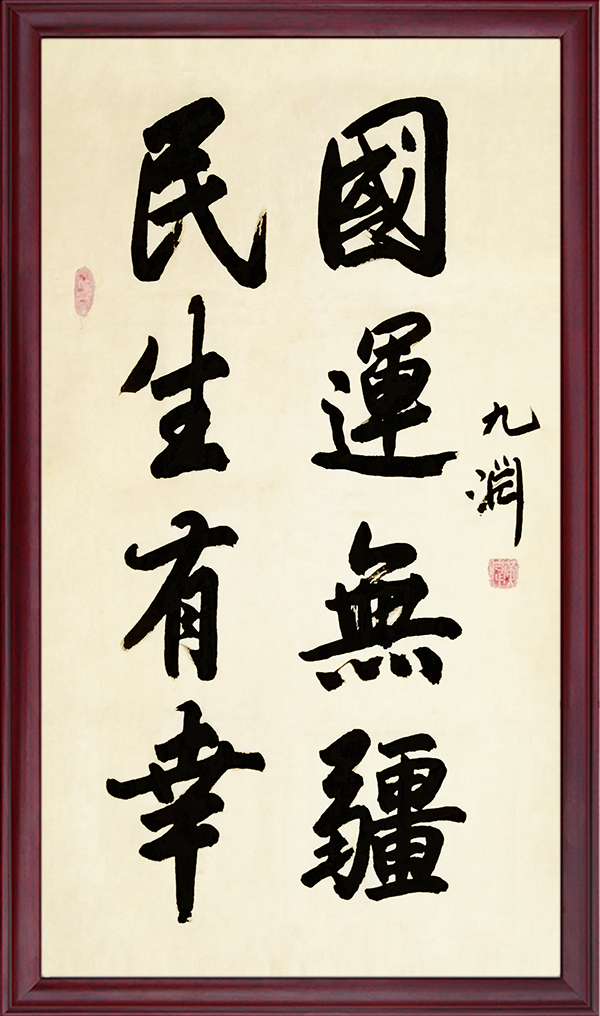 國運無疆
民生有幸
九淵